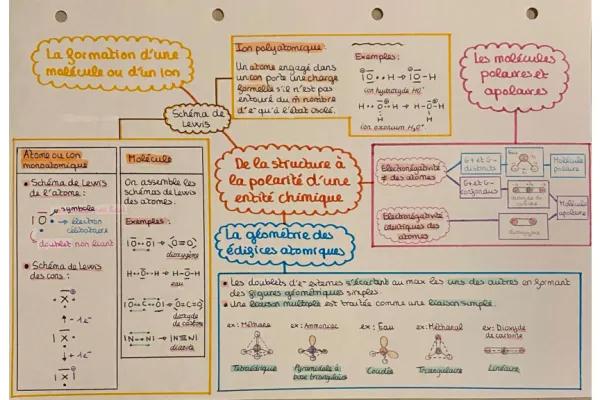 La formation d'une
molécule ou d'un ion
Schéma de
Lewis
Ion polyatomique:
Un atome engagé dans
un ion porte une charge
formelle s'il n'est pas
entouré du m̂ nombre
d'e⁻ qu'à l'état isolé.
Exemples:
ion hydroxyde HO⁻
ion oxonium H₃O⁺
Les molécules
polaires et
apolaires
Atome ou ion
monoatomique
• Schéma de Lewis
de l'atome:
symbole
électron
célibataire
doublet non liant
• Schéma de Lewis
des ions:
- 1e⁻
+ 1e⁻
Molécule
On assemble les
schémas de Lewis
des atomes.
Exemples:
dioxygène
eau
dioxyde
de carbone
diazote
De la structure à
la polarité d'une
entité chimique
Électronégativité
≠ des atomes
δ+ et δ-
distincts
Molécule
polaire
δ+ et δ-
confondus
Molécule
apolaire
Électronégativité
identiques des
atomes
La géométrie des
édifices atomiques
• Les doublets d'e⁻ externes s'écartent au max les uns des autres en formant
des figures géométriques simples.
• Une liaison multiple est traitée comme une liaison simple.
ex: Méthane
ex: Ammoniac
ex: Eau
ex: Méthanal
ex: Dioxyde
de carbone
Tétraédrique
Pyramidale à
base triangulaire
Coudée
Triangulaire
Linéaire